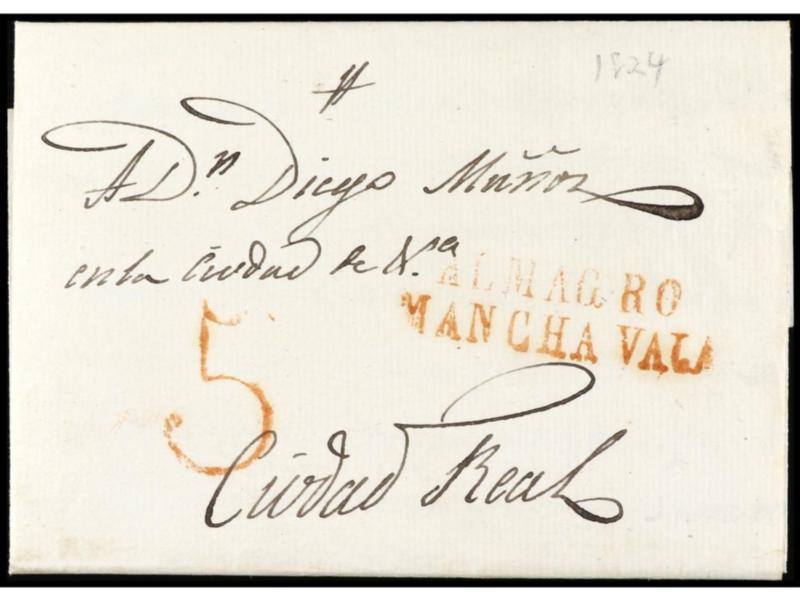 1824
A D.n Diego Muñoz
en la Ciudad de
ALMAGRO
MANCHA VAJA
5
Ciudad Real